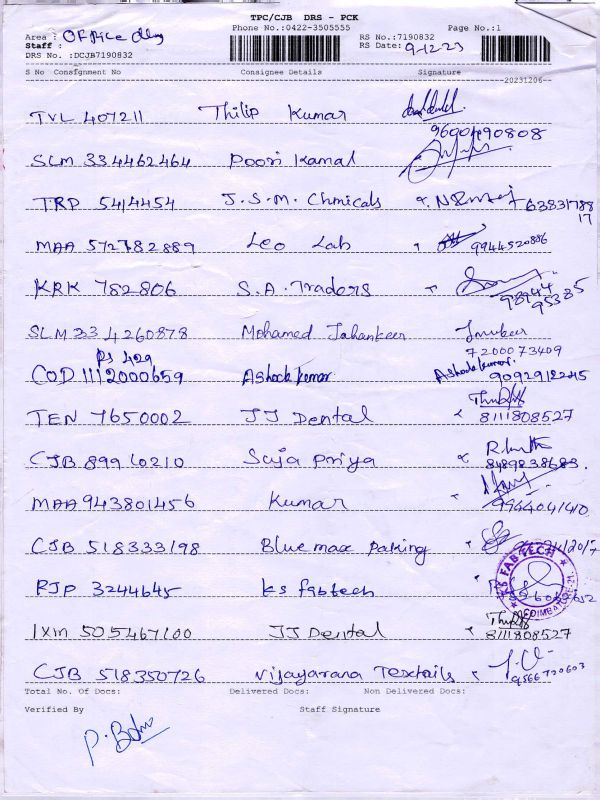 TPC/CJB DRS - PCK
Phone No.:0422-3505555 Page No.:1
Area : Office dly RS No.:7190832
Staff : RS Date: 9-12-23
DRS No. :DCJB7190832
S No Consignment No Consignee Details Signature
20231206
TVL 407211 Thilip Kumar
9690490808
SLM 334462464 Poori Kamal
TRP 5414454 J.S.M. Chmicals 63831788
17
MAA 572782889 Leo Lab 9944520886
KRK 782806 S.A. Traders 98944
95385
SLM 334260878 Mohamed Jahankeer
Rs 429 7200073409
COD 1112000659 Ashock kumar Ashock kumar
9092912245
TEN 7650002 JJ Dental 8111808527
CJB 89960210 Suja Priya 8489838683
MAA 943801456 Kumar 9964041410
CJB 518333198 Bluemax paking
RJP 3244645 ks fabtech KS FABTECH COIMBATORE
IXM 505467100 JJ Dental 8111808527
CJB 518350726 Vijayarana Textails 9566720603
Total No. Of Docs: Delivered Docs: Non Delivered Docs:
Verified By Staff Signature